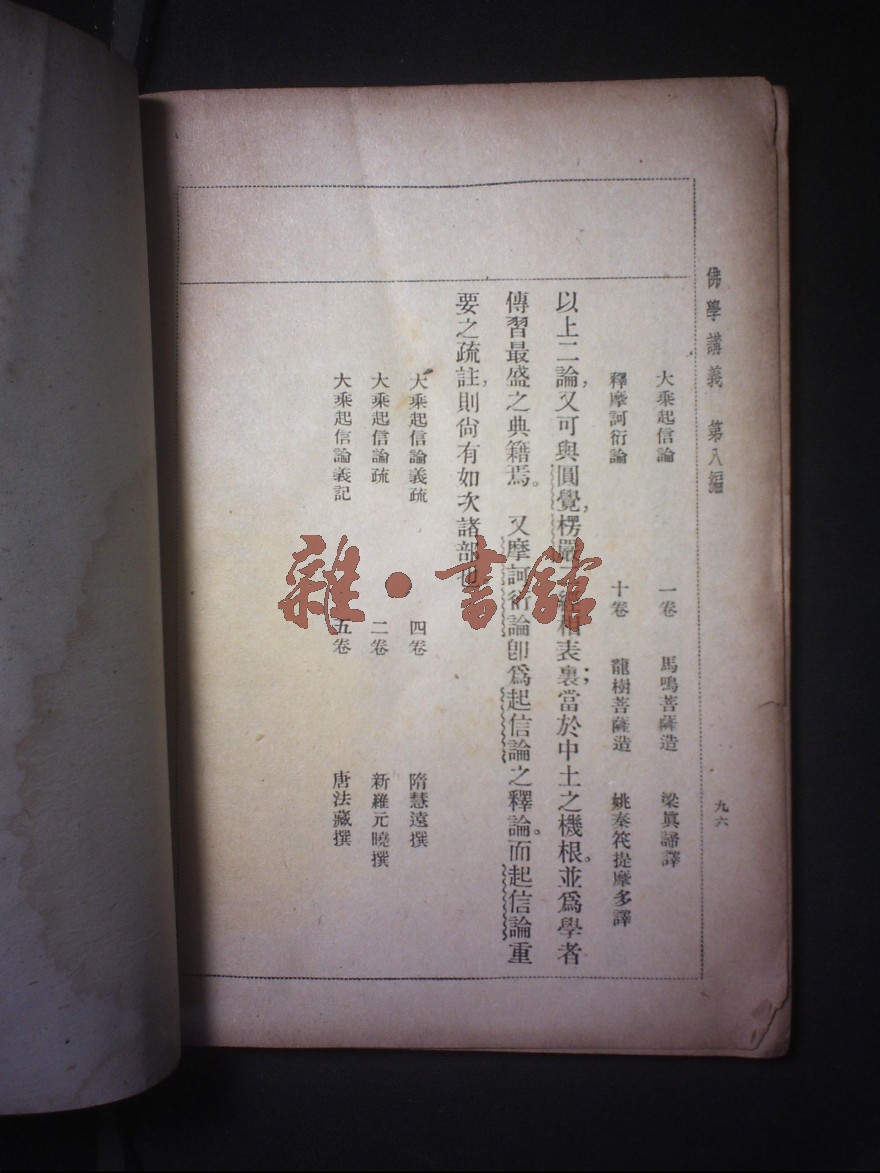 佛學講義 第八編 九六
大乘起信論 一卷 馬鳴菩薩造 梁真諦譯
釋摩訶衍論 十卷 龍樹菩薩造 姚秦筏提摩多譯
以上二論,又可與圓覺,楞嚴二經相表裏;當於中土之機根。並爲學者
傳習最盛之典籍焉。又摩訶衍論即爲起信論之釋論。而起信論重
要之疏註,則尙有如次諸部也
大乘起信論義疏 四卷 隋慧遠撰
大乘起信論疏 二卷 新羅元曉撰
大乘起信論義記 五卷 唐法藏撰
雜·書館